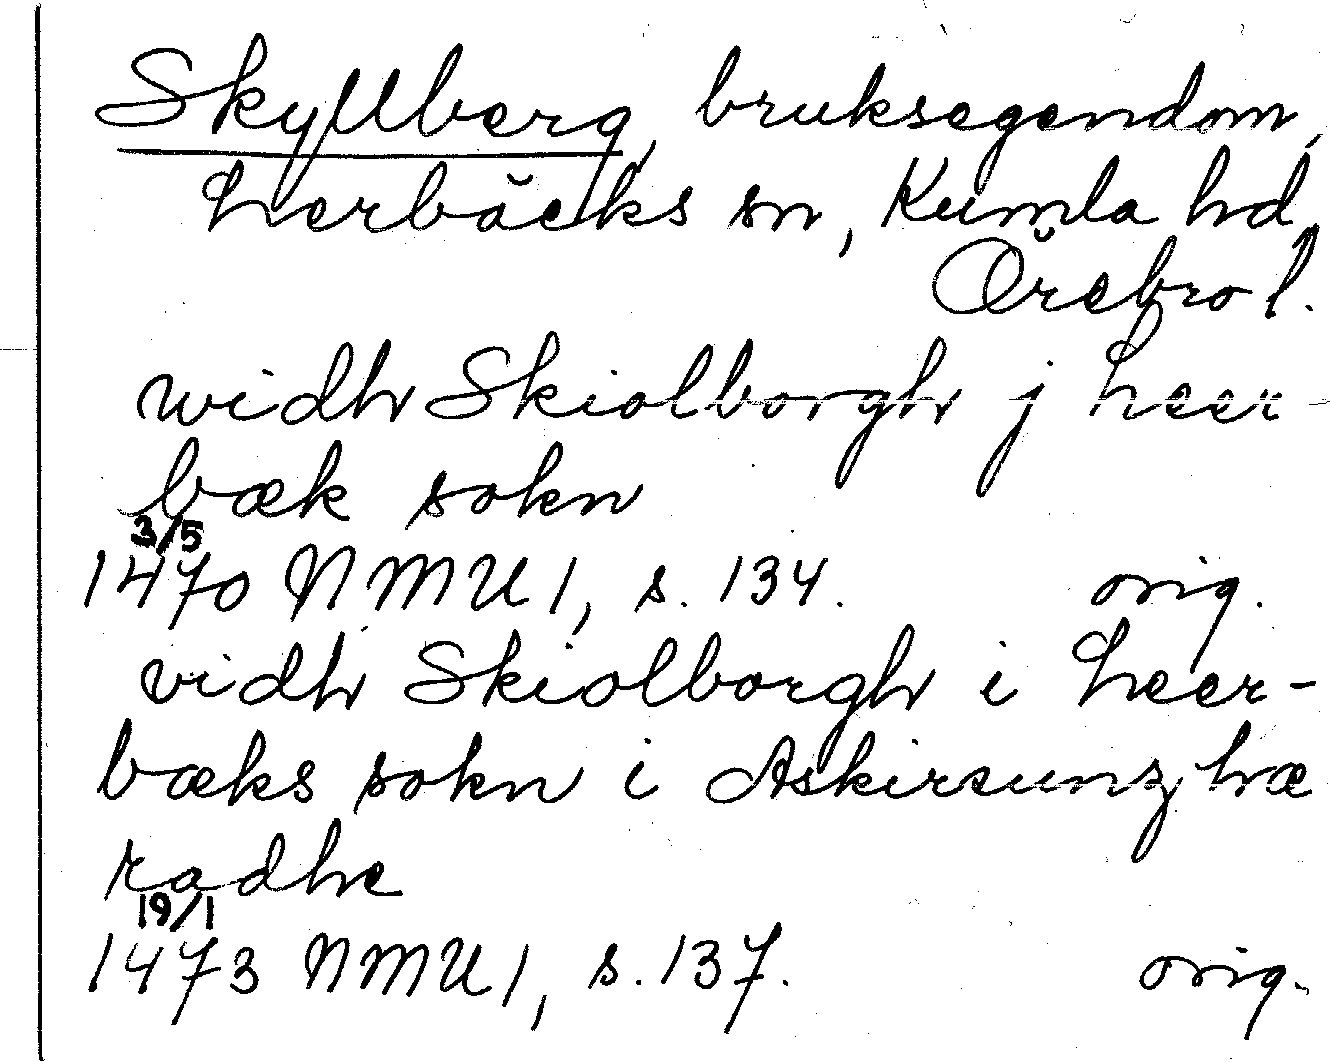 Skyllberg, bruksegendom,
Lerbäcks sn, Kumla hd,
Örebro l.
widh Skiolborgh j Leer-
bæk sokn
3/5
1470 NMU 1, s. 134. orig.
vidh Skiolborgh i Leer-
bæks sokn i Askirsunz hæ
radhe
19/1
1473 NMU 1, s. 137. orig.